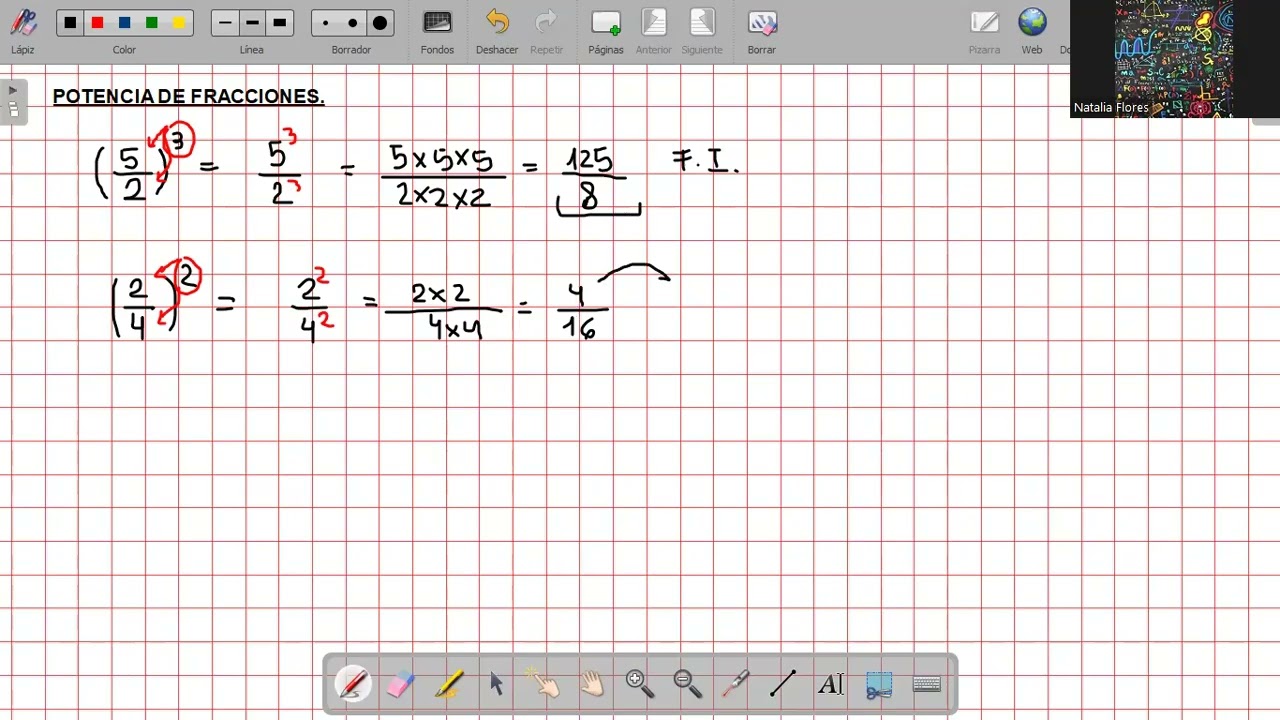 Lápiz Color Línea Borrador Fondos Deshacer Repetir Páginas Anterior Siguiente Borrar Pizarra Web
Natalia Flores
POTENCIA DE FRACCIONES.
(5/2)^3 = 5^3/2^3 = 5x5x5/2x2x2 = 125/8 F.I.
(2/4)^2 = 2^2/4^2 = 2x2/4x4 = 4/16
A